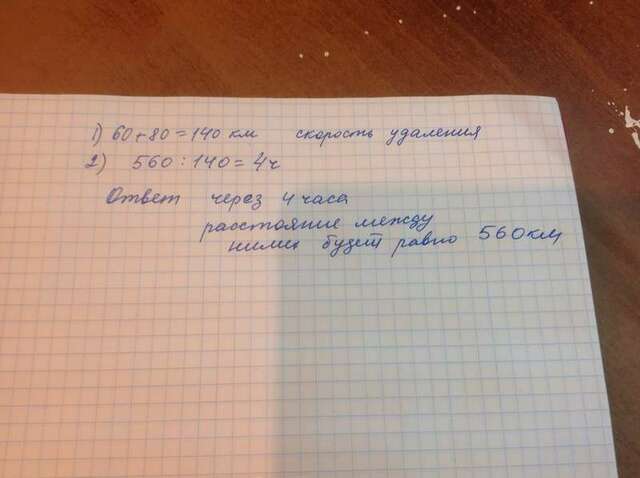 1) 60+80=140 км скорость удаления
2) 560:140=4ч
Ответ через 4 часа
расстояние между
ними будет равно 560км